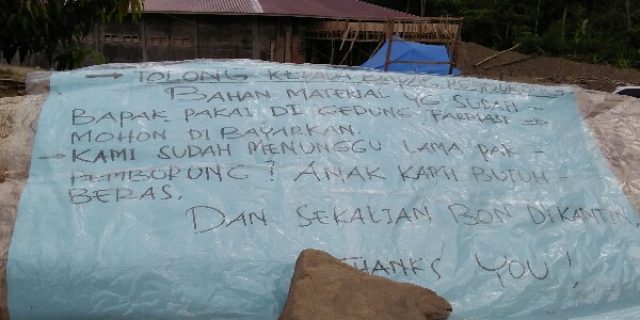 → TOLONG KEPADA
BAHAN MATERIAL YG SUDAH -
BAPAK PAKAI DI GEDUNG FARMASI ⇒
MOHON DI BAYARKAN.
→ KAMI SUDAH MENUNGGU LAMA PAK -
PEMBORONG? ANAK KAMI BUTUH -
BERAS.
DAN SEKALIAN BON DIKANTIN.
THANKS YOU!